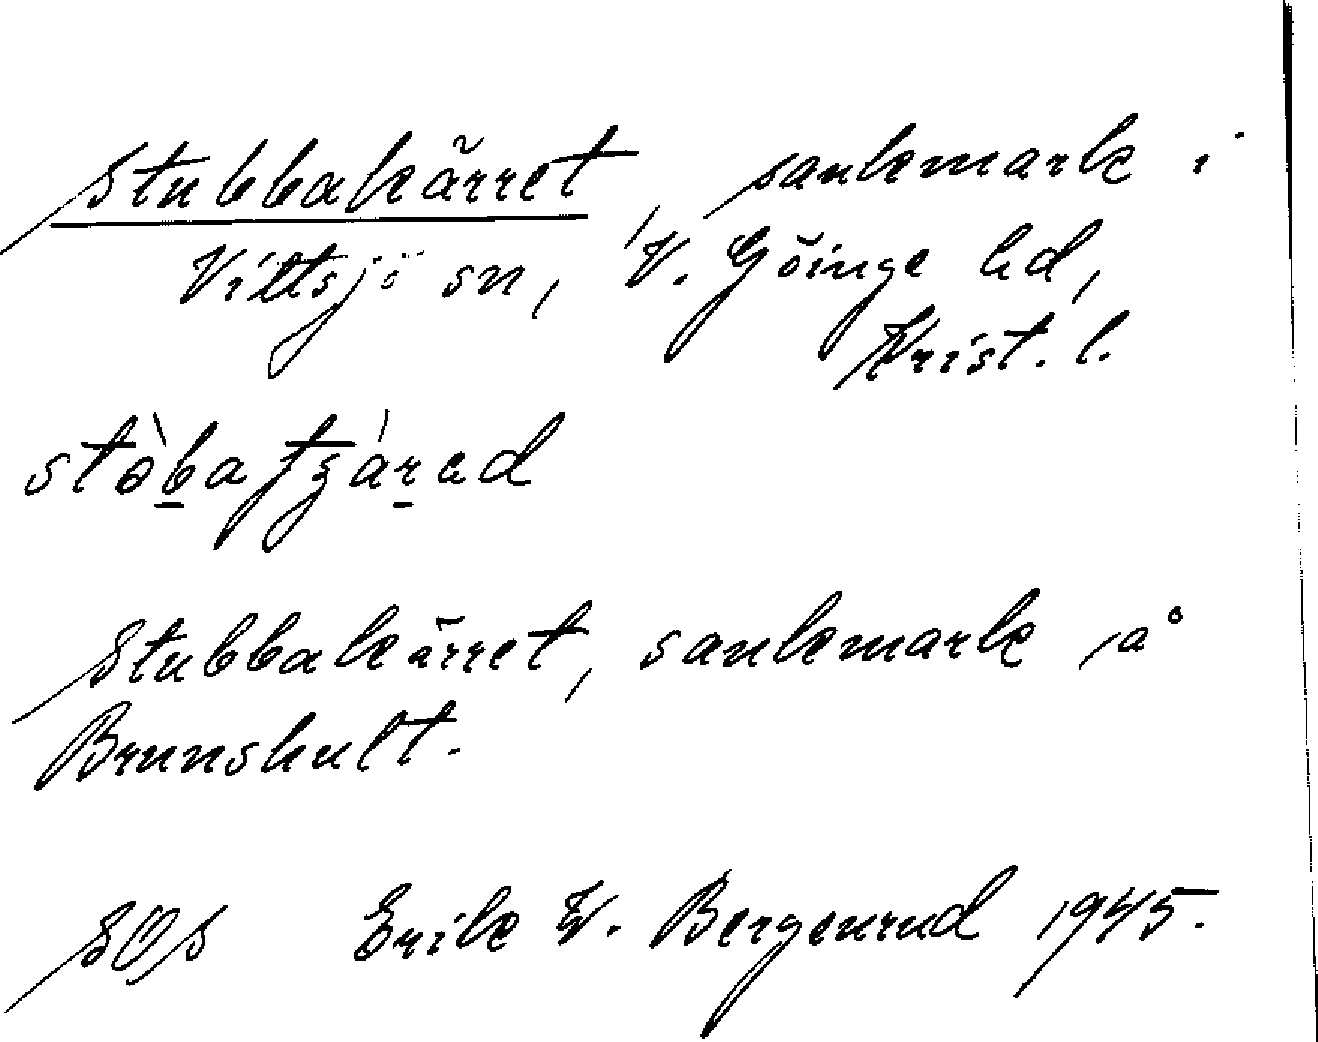 Stubbakärret, sankmark i
Vittsjö sn, V. Göinge hd,
Krist. l.
stòbatʒárad
Stubbakärret, sankmark på
Brunshult.
SOS Erik W. Bergenrud 1945.